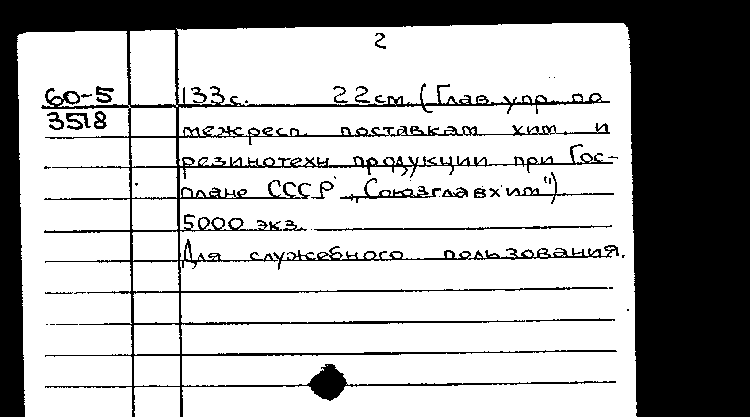 2
60-5
3518
133с. 22см. (Глав. упр. по
межресп. поставкам хим. и
резинотехн. продукции при Гос-
плане СССР „Союзглавхим“)
5000 экз.
Для служебного пользования.